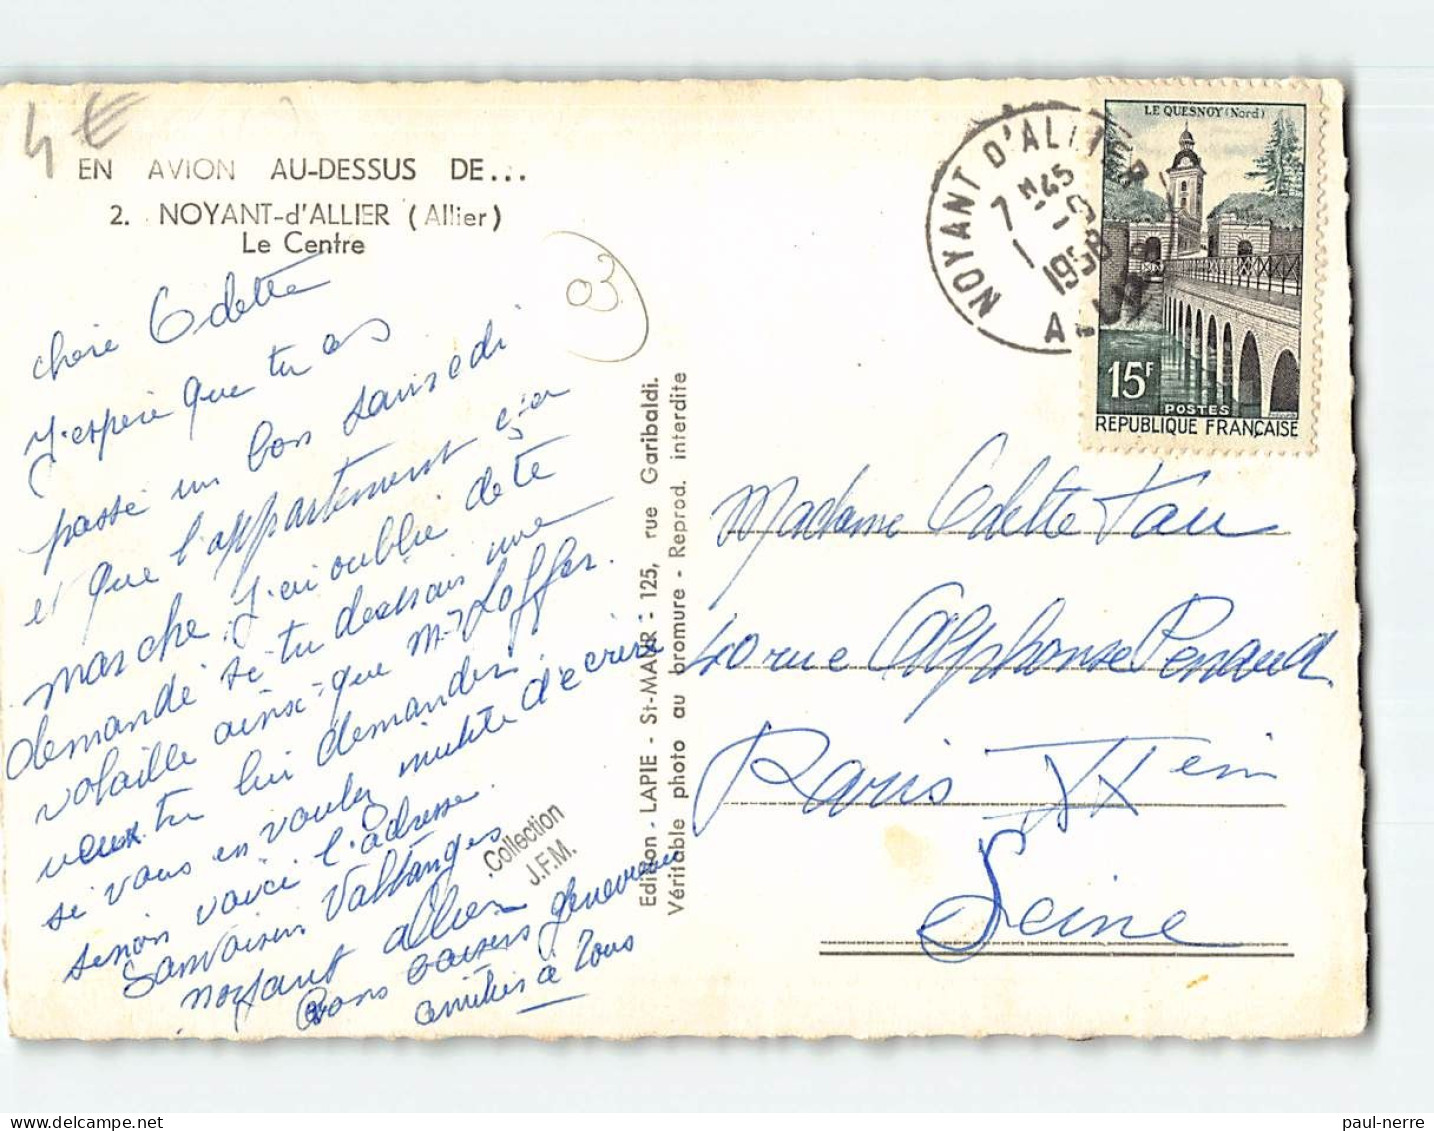 4€
EN AVION AU-DESSUS DE...
2. NOYANT-d'ALLIER (Allier)
Le Centre
03
chère Odette
J'espère que tu as
passé un bon samedi
et que l'appartement
marche. J'ai oublié de te
demandé si tu desirais une
volaille ainsi que
veux tu lui demander.
si vous en voulez d'écrire
sinon voici l'adresse.
Valtanges
noyant allier
Bons baisers geneviève
amitiés à tous
Collection
J.F.M.
Edition - LAPIE - St-MAUR - 125, rue Garibaldi.
Véritable photo au bromure - Reprod. interdite
NOYANT D'ALLIER
7 H 45
1 - 9
1958
ALLIER
LE QUESNOY (Nord)
15F
POSTES
REPUBLIQUE FRANÇAISE
Madame Odette Fau
40 rue Alphonse Penaud
Paris XX eim
Seine
paul-nerre